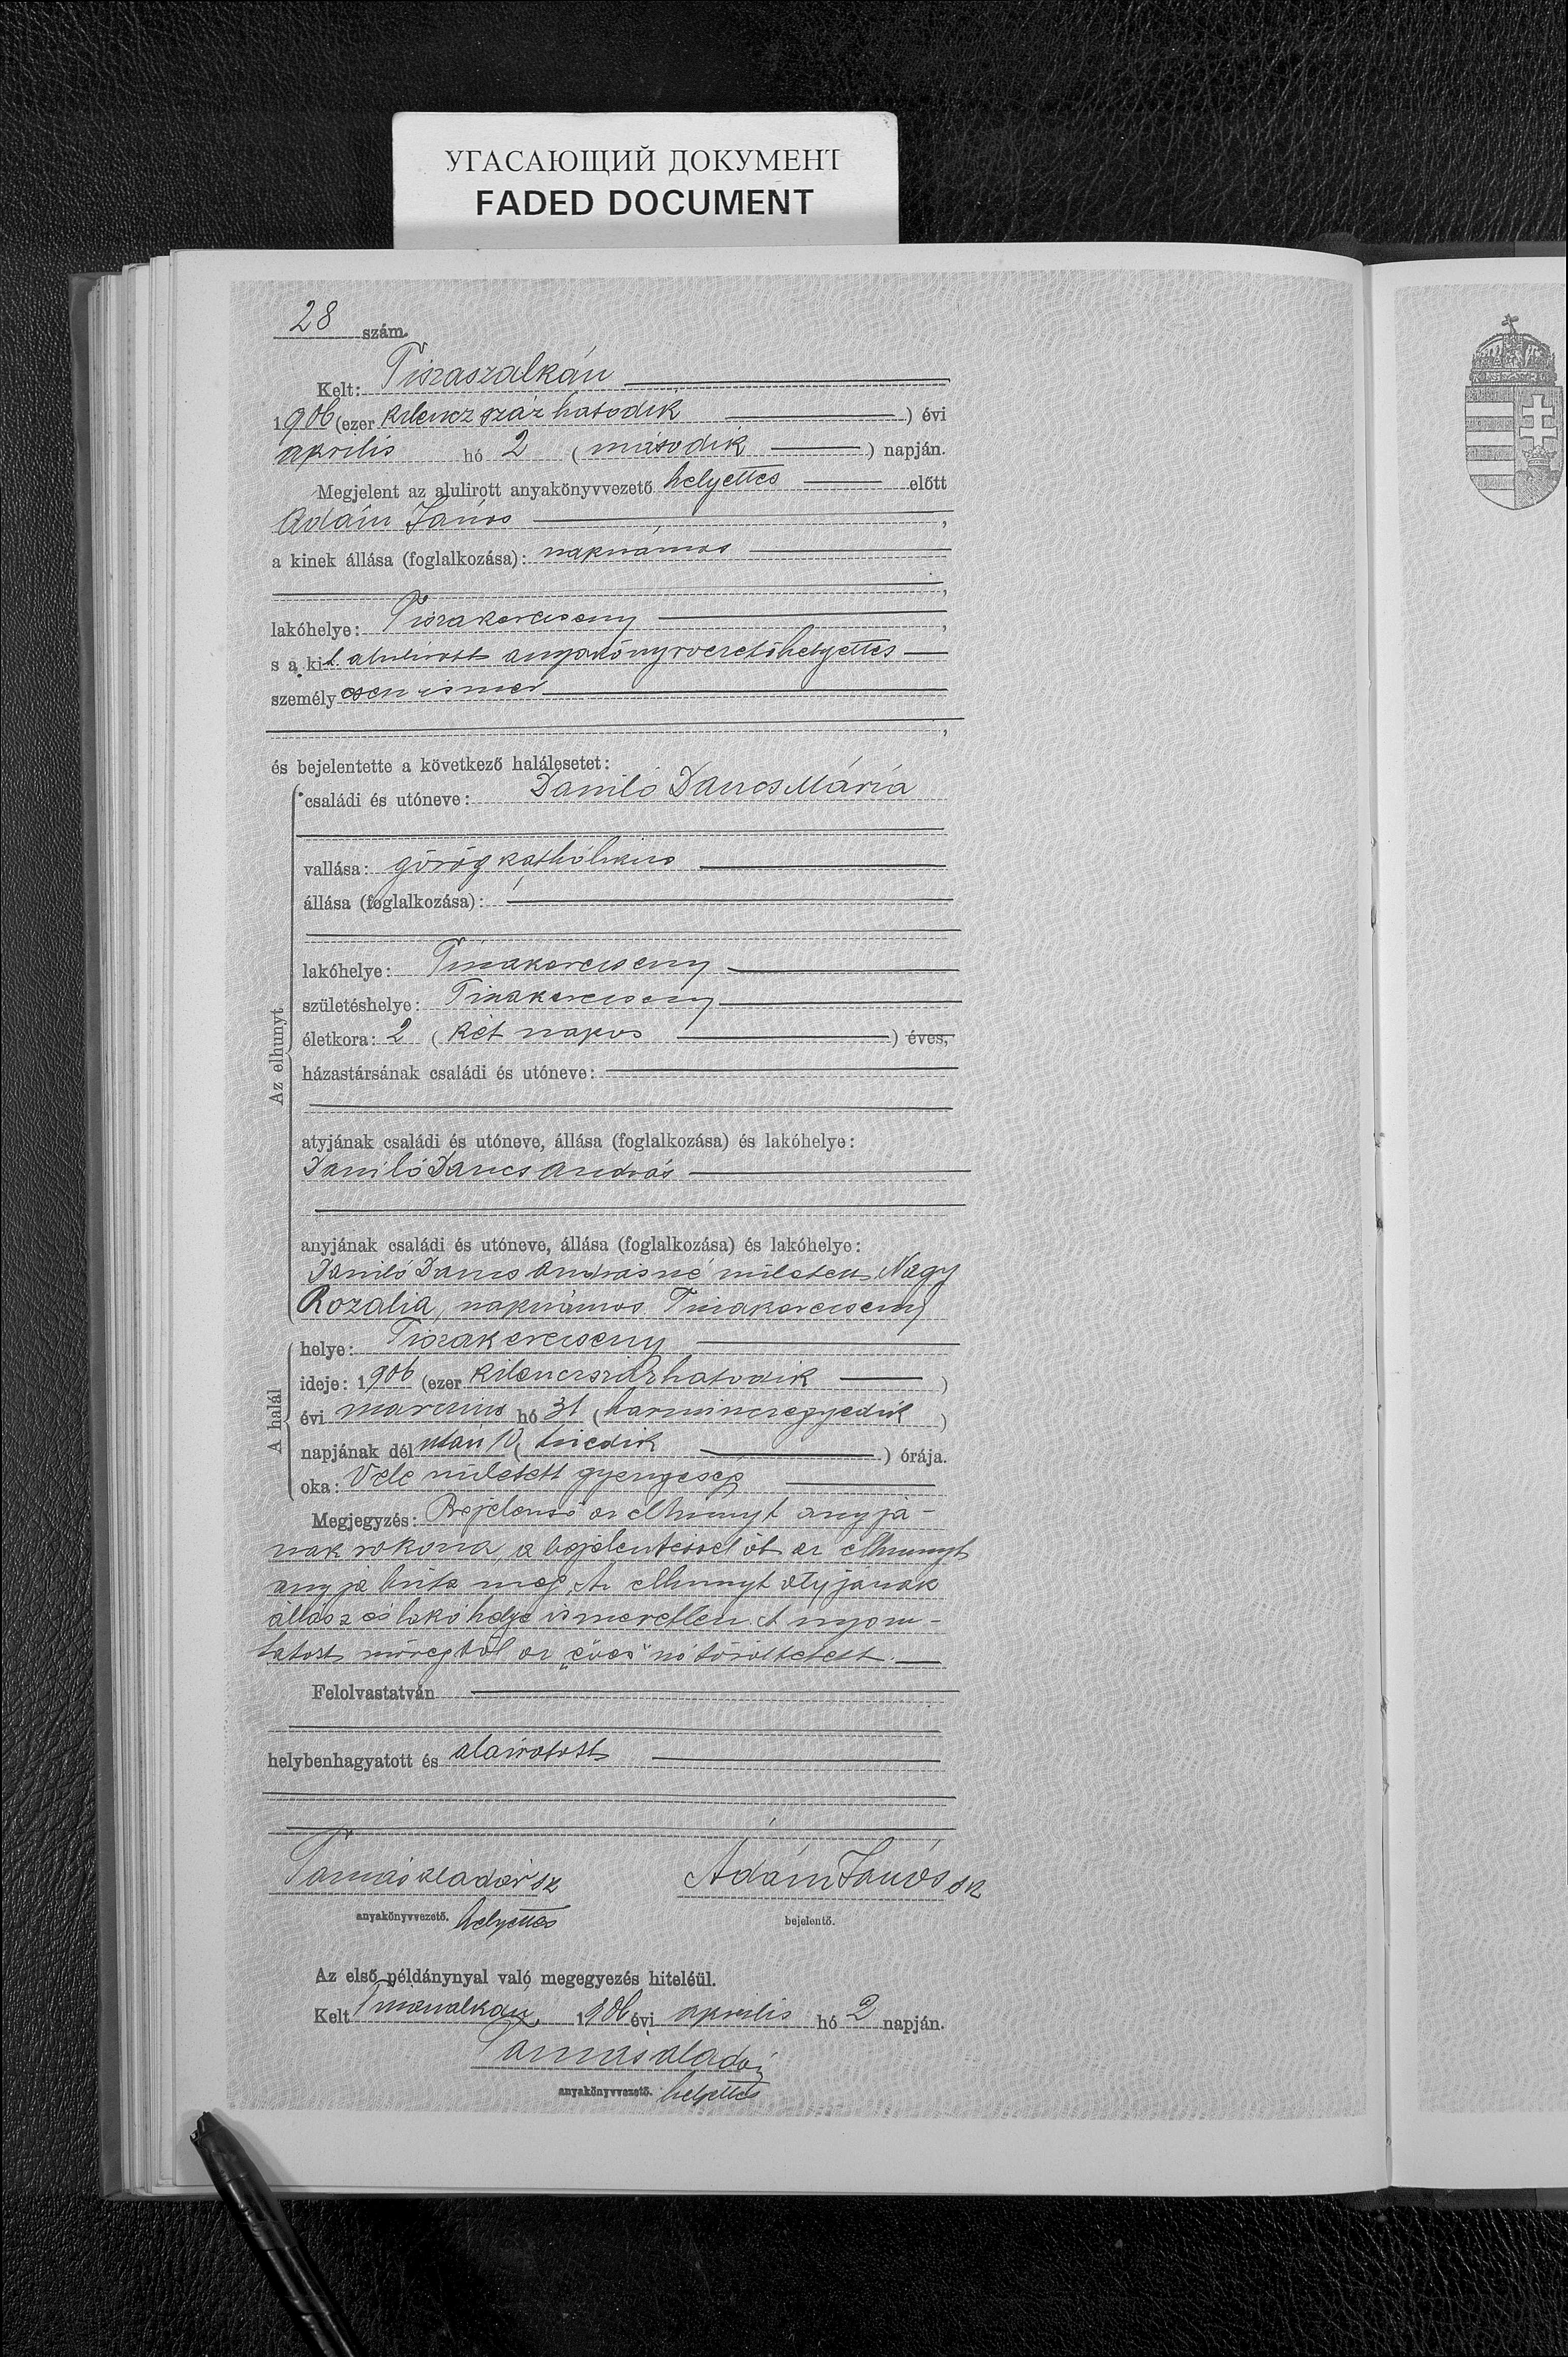 УГАСАЮЩИЙ ДОКУМЕНТ
FADED DOCUMENT
28 szám.
Kelt: Tiszaszalkán
1906 (ezer kilencz száz hatodik ) évi
aprilis hó 2 ( második ) napján.
Megjelent az alulirott anyakönyvvezető helyettes előtt
Adám János ,
a kinek állása (foglalkozása): napszámos
,
lakóhelye: Tiszakerecseny ,
s a kit alulirott anyakönyvvezetőhelyettes
személyesen ismer
,
és bejelentette a következő halálesetet:
Az elhunyt
családi és utóneve: Daniló Dancs Mária
vallása: görög katholikus
állása (foglalkozása):
lakóhelye: Tiszakerecseny
születéshelye: Tiszakerecseny
életkora: 2 ( két napos ) éves,
házastársának családi és utóneve:
atyjának családi és utóneve, állása (foglalkozása) és lakóhelye:
Daniló Dancs András
anyjának családi és utóneve, állása (foglalkozása) és lakóhelye:
Daniló Dancs Andrásné született Nagy
Rozalia, napszámos Tiszakerecseny
A halál
helye: Tiszakerecseny
ideje: 1906 (ezer kilenczszáz hatodik )
évi marczius hó 31 ( harminczegyedik )
napjának délután 10 ( tizedik ) órája.
oka: Vele született gyengeség
Megjegyzés: Bejelentő az elhunyt anyjá-
nak rokona, a bejelentéssel őt az elhunyt
anyja bízta meg. Az elhunyt atyjának
állása és lakóhelye ismeretlen. A nyom-
tatott szövegből az „éves" szó töröltetett.
Felolvastatván
helybenhagyatott és aláiratott
Tamás Aladár sk
Adám János sk
anyakönyvvezető. helyettes
bejelentő.
Az első példánynyal való megegyezés hiteléül.
Kelt Tiszaszalkán, 1906 évi aprilis hó 2 napján.
Tamás Aladár
anyakönyvvezető. helyettes